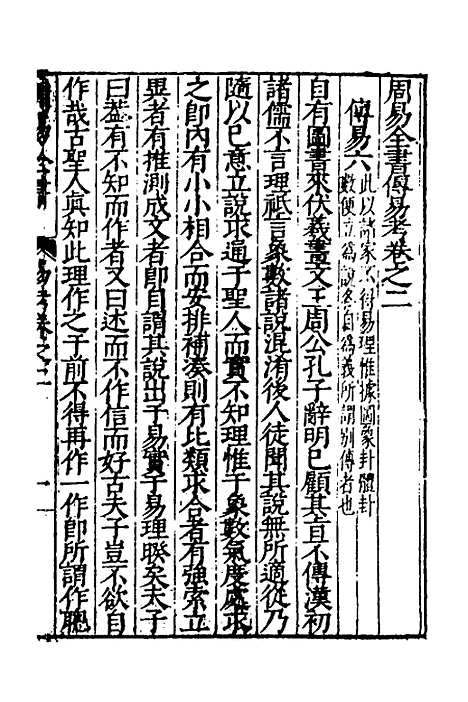 周易全書傳易考卷之二
傳易六
此以諸家不得易理惟據圖象卦體卦
數便立爲說各自爲義所謂别傳者也
自有圖書來伏羲畫文王周公孔子辭明巳顧其旨不傳漢初
諸儒不言理祇言象數諸說混淆後人徒聞其說無所適從乃
隨以巳意立說求通于聖人而實不知理惟于象數氣度處求
之卽内有小小相合而安排補湊則有比類求合者有強索立
異者有推測成文者卽自謂其說出于易實于易理睽矣夫子
曰蓋有不知而作者又曰述而不作信而好古夫子豈不欲自
作哉古聖人眞知此理作之于前不得再作一作卽所謂作聰
易考卷之二
一